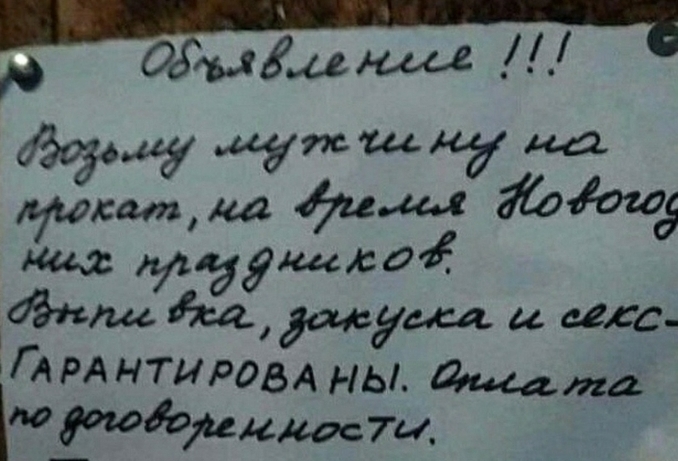 Объявление !!!
Возьму мужчину на
прокат, на время Новогод
них праздников.
Выпивка, закуска и секс-
ГАРАНТИРОВАНЫ. Оплата
по договоренности.